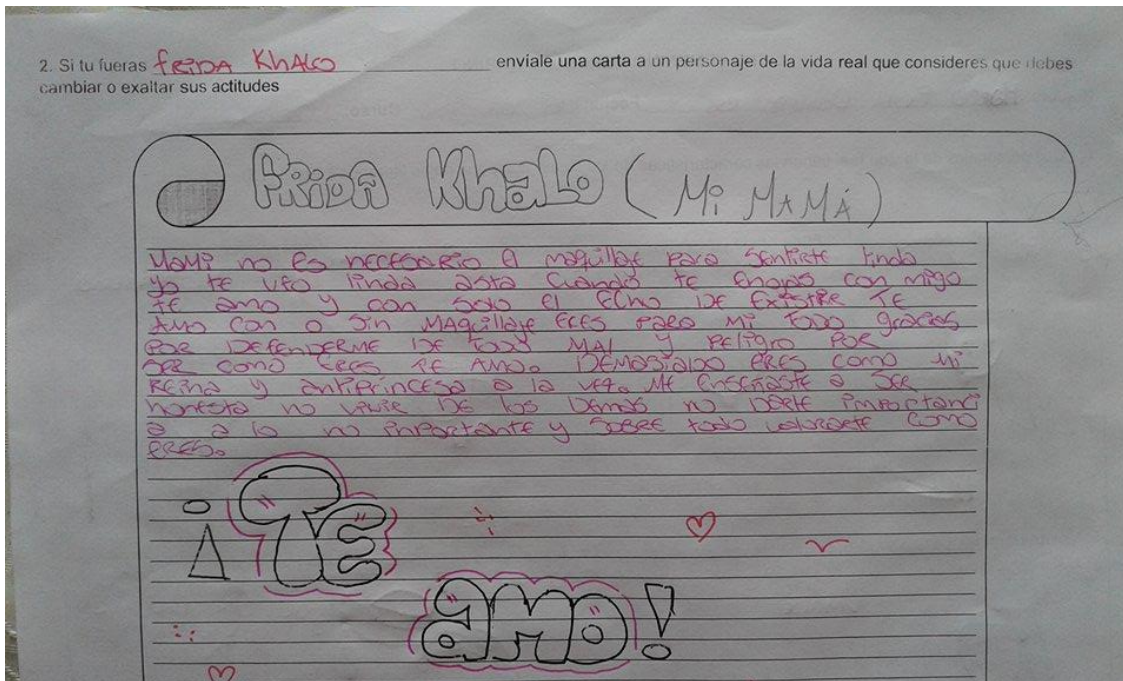 2. Si tu fueras FRIDA KhALO envíale una carta a un personaje de la vida real que consideres que debes
cambiar o exaltar sus actitudes
FRIDA KhaLO (Mi MAMÁ)
Mami no es necesario el maquillaje para sentirte linda
yo te veo linda asta cuando te enojas con migo
te amo y con solo el Echo DE EXistir TE
AMO con o sin MAquillaje eres para mi todo gracias
POR DEFENDERME DE todo MAL y peligro POR
SER como eres TE AMO. DEMASiaDO eres como mi
REina y antiprincesa a la vez. ME Enseñaste a SER
honesta no vivir DE los Demas no Darle importanci
a a lo no inportante y SOBRE todo valorarte como
ERES.
¡TE
amo!